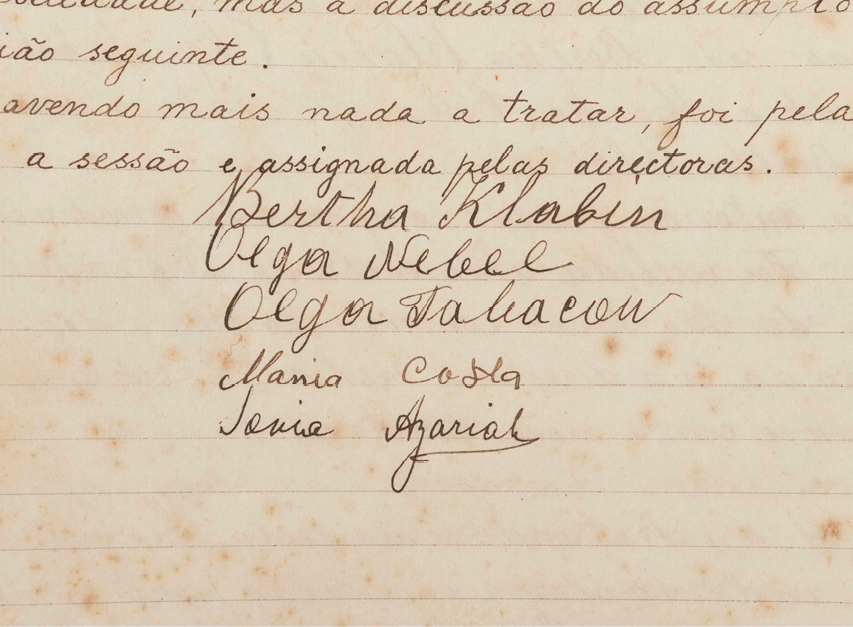 mas a discussão do assumpto
ião seguinte.
avendo mais nada a tratar, foi pela
a sessão e assignada pelas directoras.
Bertha Klabin
Olga Nebel
Olga Tabacow
Mania Costa
Sonia Azariah